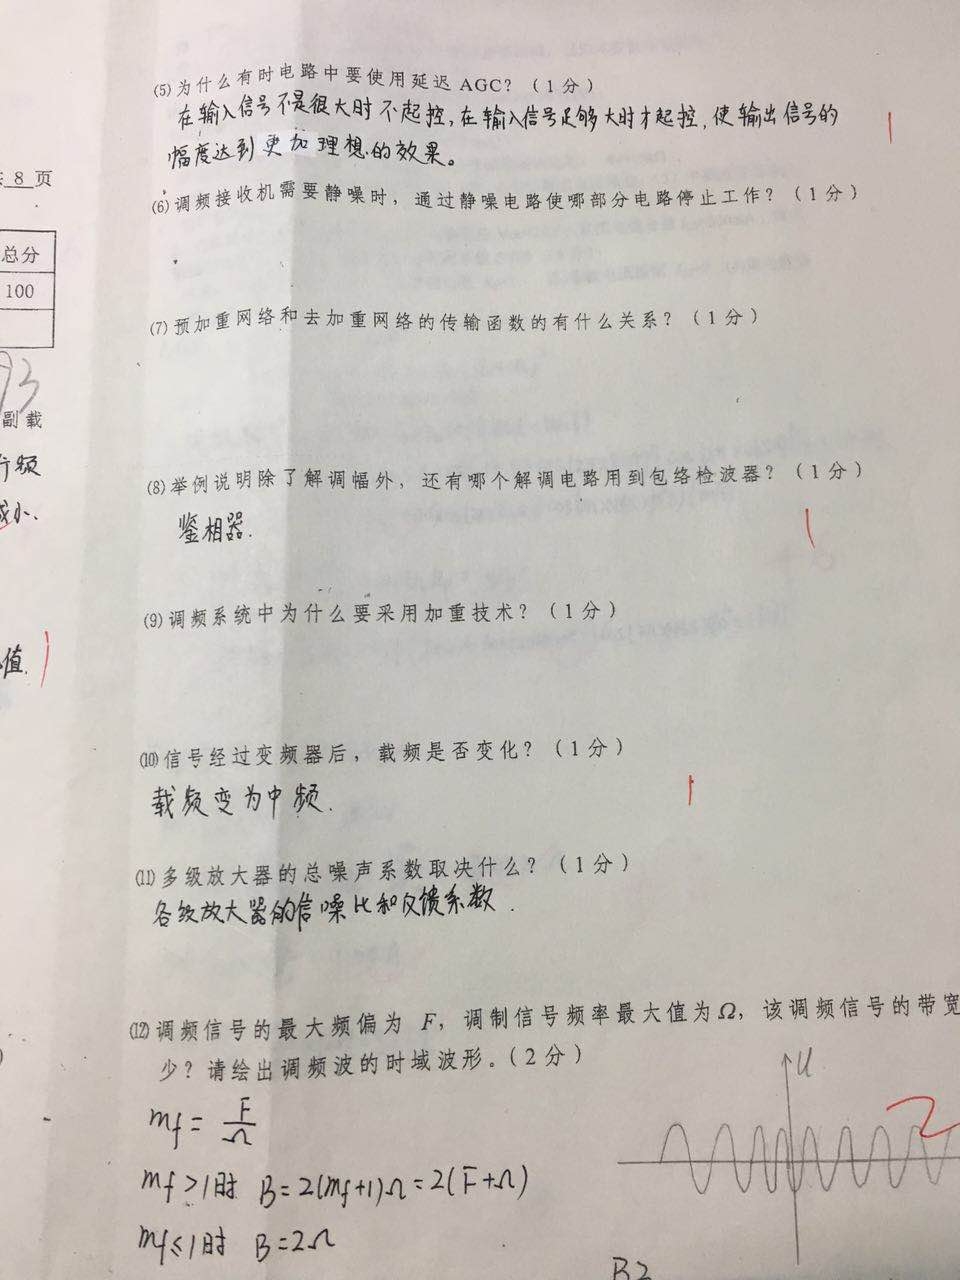 (5)为什么有时电路中要使用延迟 AGC？（1分）
在输入信号不是很大时不起控，在输入信号足够大时才起控，使输出信号的
幅度达到更加理想的效果。
1
共 8 页
(6)调频接收机需要静噪时，通过静噪电路使哪部分电路停止工作？（1分）
总分
100
(7)预加重网络和去加重网络的传输函数的有什么关系？（1分）
93
副载
(8)举例说明除了解调幅外，还有哪个解调电路用到包络检波器？（1分）
鉴相器.
1
减小.
(9)调频系统中为什么要采用加重技术？（1分）
值.
1
(10)信号经过变频器后，载频是否变化？（1分）
载频变为中频.
1
(11)多级放大器的总噪声系数取决什么？（1分）
各级放大器的信噪比和反馈系数.
(12)调频信号的最大频偏为 F，调制信号频率最大值为Ω，该调频信号的带宽
少？请绘出调频波的时域波形。（2分）
u
2
mf = F/Ω
mf>1时 B=2(mf+1)Ω=2(F+Ω)
mf≤1时 B=2Ω